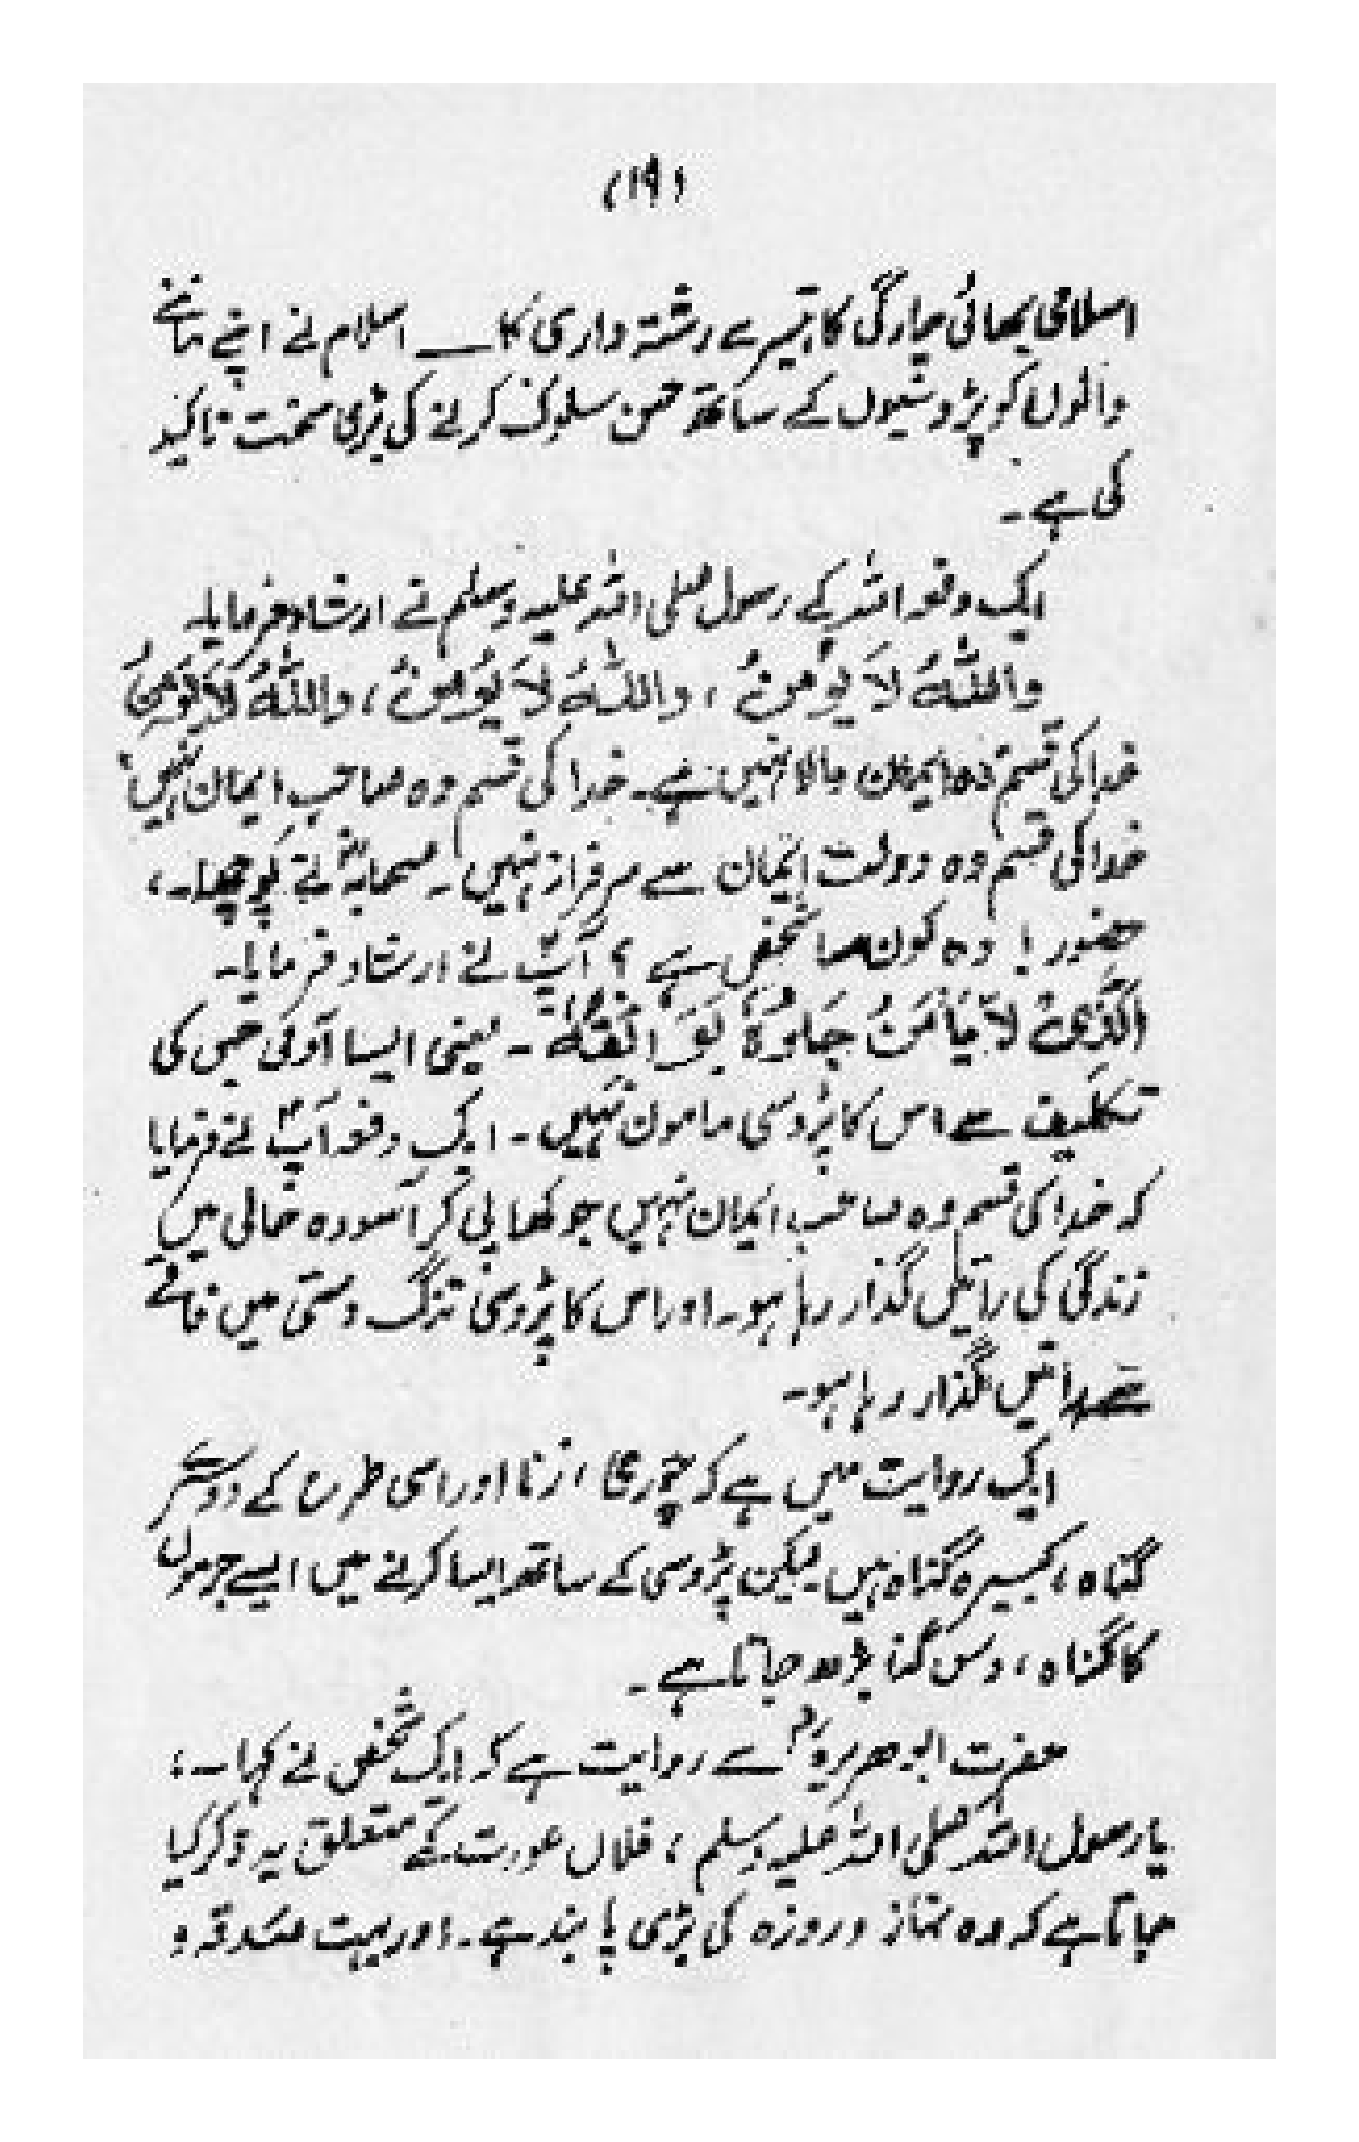 (۱۹)
اسلامی بھائی چارگی کا، تیسرے رشتہ داری کا ــ اسلام نے اپنے ماننے
والوں کو پڑوسیوں کے ساتھ حسن سلوک کرنے کی بڑی سخت تاکید
کی ہے۔
ایک دفعہ اللہ کے رسول صلی اللہ علیہ وسلم نے ارشاد فرمایا۔
وَاللّٰهُ لَا يُؤمِنُ ، وَاللّٰهُ لَا يُؤمِنُ ، وَاللّٰهُ لَا يُؤمِنُ
خدا کی قسم وہ ایمان والا نہیں ہے۔ خدا کی قسم وہ صاحبِ ایمان نہیں،
خدا کی قسم وہ دولت ایمان سے سرفراز نہیں۔ صحابہؓ نے پوچھا۔،
حضور! وہ کون سا شخص ہے ؟ آپؐ نے ارشاد فرمایا۔
اَلَّذِیْ لَا یَأمَنُ جَارُہٗ بَوَائِقَہٗ ۔ یعنی ایسا آدمی جس کی
تکلیف سے اس کا پڑوسی مامون نہیں۔ ایک دفعہ آپؐ نے فرمایا
کہ خدا کی قسم وہ صاحب ایمان نہیں جو کھا پی کر آسودہ حالی میں
زندگی کی راتیں گذار رہا ہو۔ اور اس کا پڑوسی تنگ دستی میں فاقے
سے راتیں گذار رہا ہو۔
ایک روایت میں ہے کہ چوری، زنا اور اسی طرح کے دوسرے
گناہ، کبیرہ گناہ ہیں لیکن پڑوسی کے ساتھ ایسا کرنے میں ایسے جرموں
کا گناہ، دس گنا بڑھ جاتا ہے۔
حضرت ابوھریرہؓ سے روایت ہے کہ ایک شخص نے کہا۔،
یا رسول اللہ صلی اللہ علیہ وسلم، فلاں عورت کے متعلق یہ ذکر کیا
جاتا ہے کہ وہ نماز و روزہ کی بڑی پابند ہے۔ اور بہت صدقہ و